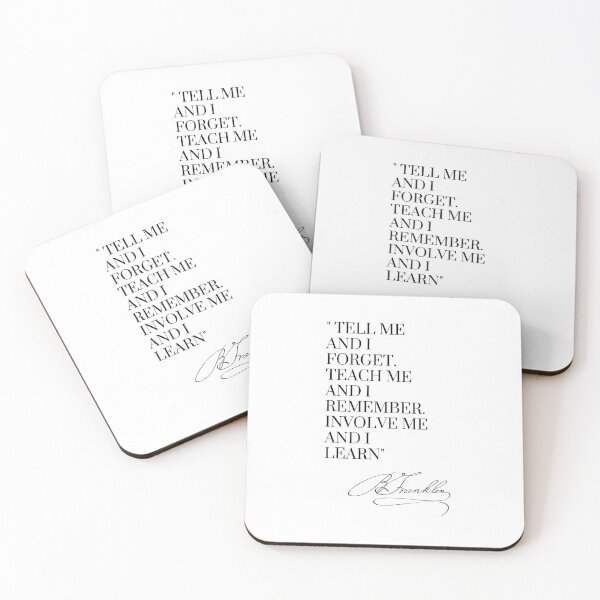 " TELL ME
AND I
FORGET.
TEACH ME
AND I
REMEMBER.
ME
" TELL ME
AND I
FORGET.
TEACH ME
AND I
REMEMBER.
INVOLVE ME
AND I
LEARN"
" TELL ME
AND I
FORGET.
TEACH ME
AND I
REMEMBER.
INVOLVE ME
AND I
LEARN"
" TELL ME
AND I
FORGET.
TEACH ME
AND I
REMEMBER.
INVOLVE ME
AND I
LEARN"
B Franklin